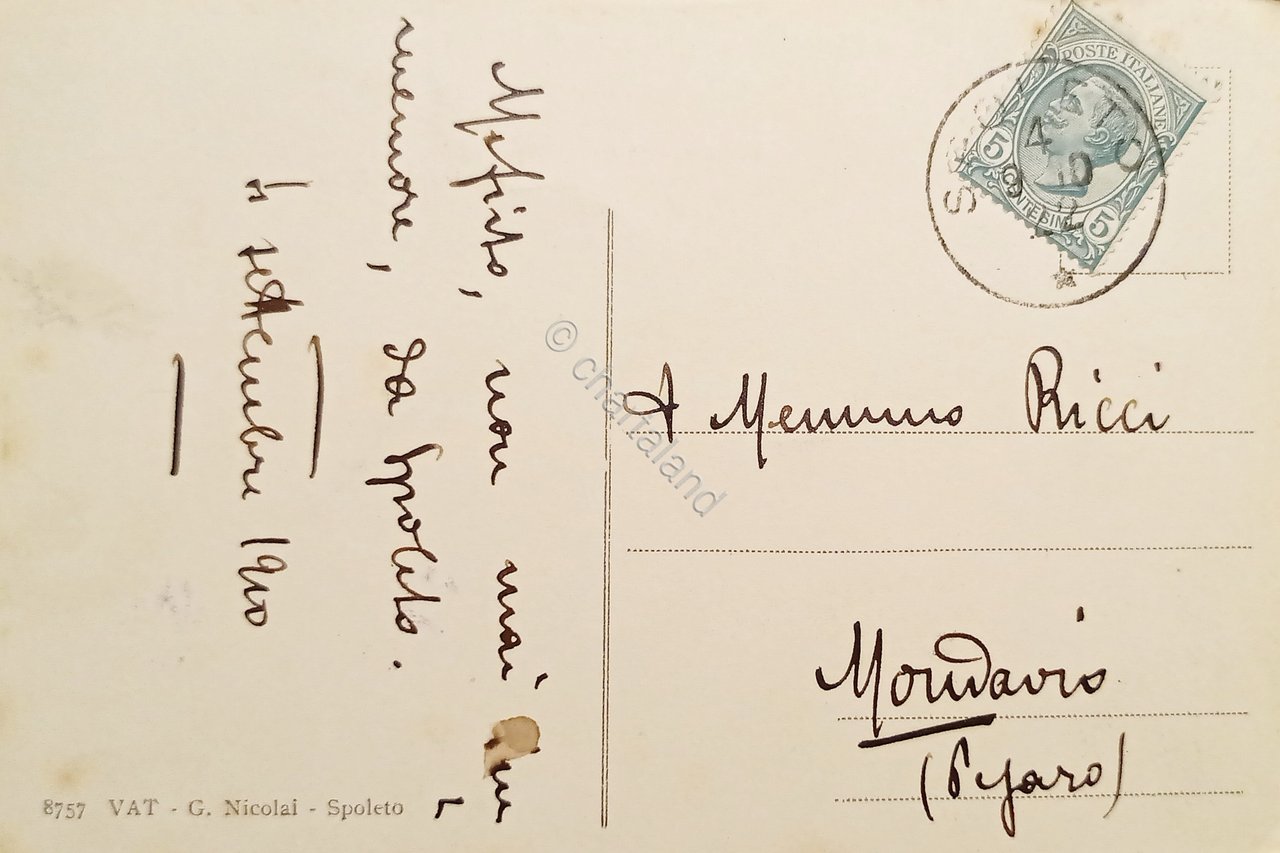 POSTE ITALIANE
5 5
CENTESIMI
SPOLETO
© chartaland
non mai
memore, da Spoleto.
settembre 1910
A Memmo Ricci
Mondavio
(Pesaro)
8757 VAT - G. Nicolai - Spoleto